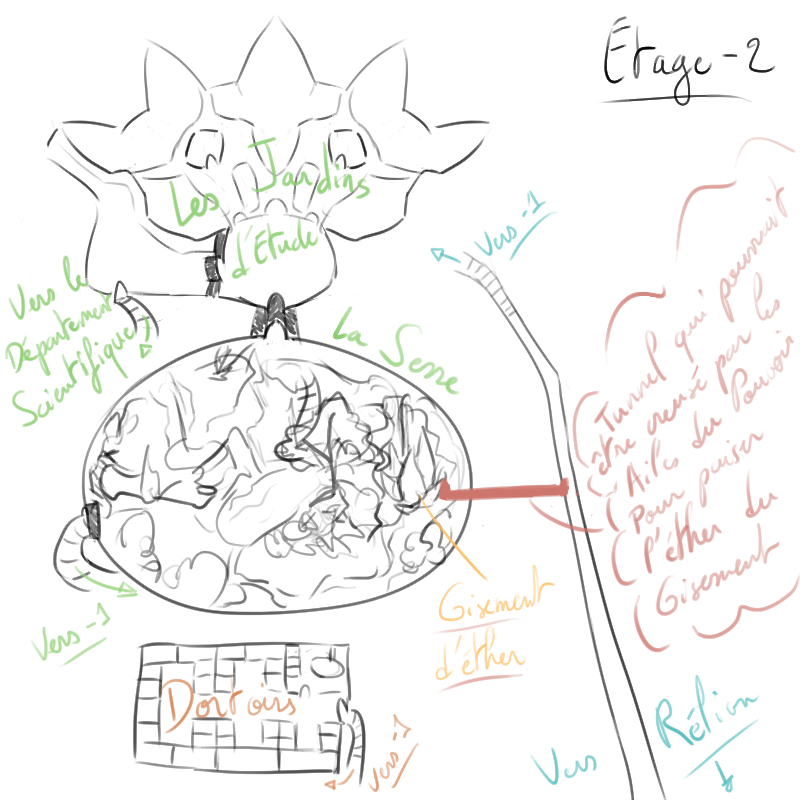 Étage-2
Les Jardins
d'Étude
Vers -1
Vers le
Département
Scientifique
La Serre
Tunnel qui pourrait
être creusé par les
Ailes du Pouvoir
Pour puiser
l'éther du
Gisement
Gisement
d'éther
Vers -1
Dortoirs
Vers -1
Vers
Rélion